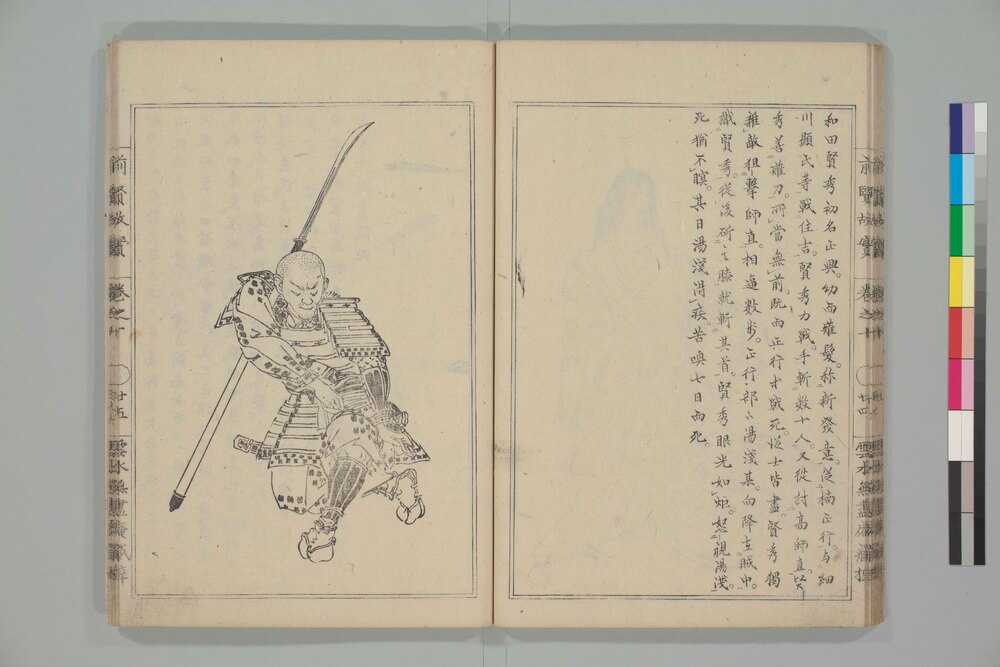 和田賢秀初名正興。幼而薙髮。称新發意。從楠正行。与細
川顯氏等戰住吉。賢秀力戰。手斬数十人。又從討高師直。
秀善薙刀。所當無前。既而正行等戰死。從士皆盡。賢秀獨
雜敵狙擊師直。相逼數步。正行部下湯淺某。向降在賊中。
識賢秀。從後斫其膝就斬其首。賢秀眼光如炬。怒視湯淺。
死猶不瞑。其日湯淺得疾。苦喚七日而死
前賢故實
卷之十
廿四
前賢故實
卷之十
廿五